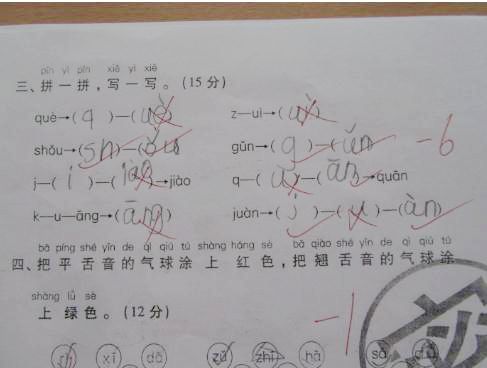 pīn yì pīn xiě yì xiě
三、拼一拼,写一写。(15分)
què→(q)—( ) z—uì→( )
shǒu→(sh)—(ǒu) gǔn→(g)—(ǔn) -6
j—(i)—( )→jiào q—( )—(ān)→quān
k—u—āng→(āng) juàn→(j)—(u)—(àn)
bǎ píng shé yīn de qì qiú tú shàng hóng sè bǎ qiào shé yīn de qì qiú tú
四、把平舌音的气球涂上红色,把翘舌音的气球涂
shàng lǜ sè
上绿色。(12分) -1
xī zhī hā